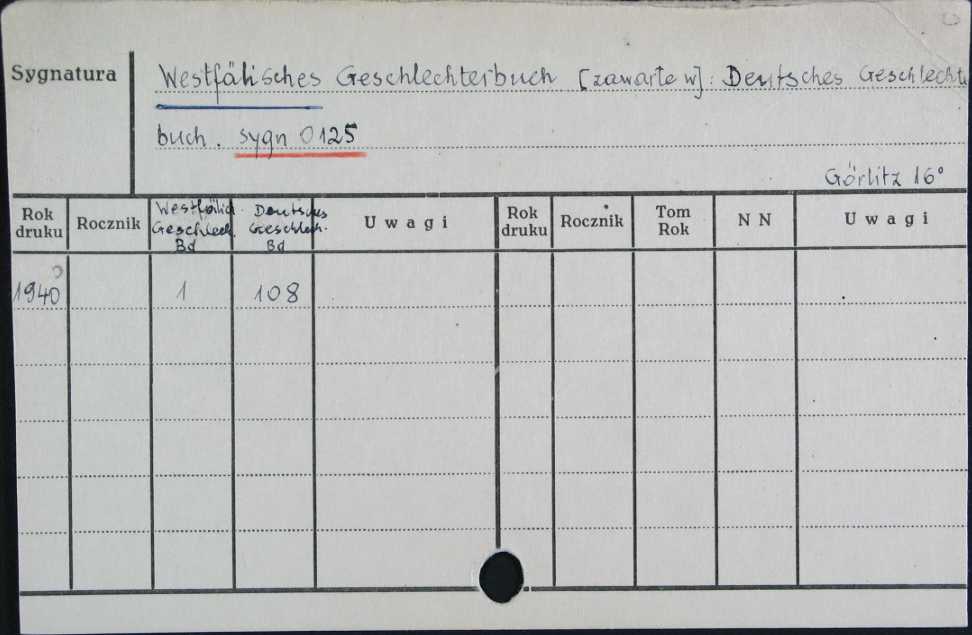 Sygnatura Westfälisches Geschlechterbuch [zawarte w]: Deutsches Geschlechte
buch. sygn 0125
Görlitz 16°
Rok druku Rocznik Westfälis. Geschlech. Bd Deutsches Geschlech. Bd Uwagi Rok druku Rocznik Tom Rok NN Uwagi
1940 1 108